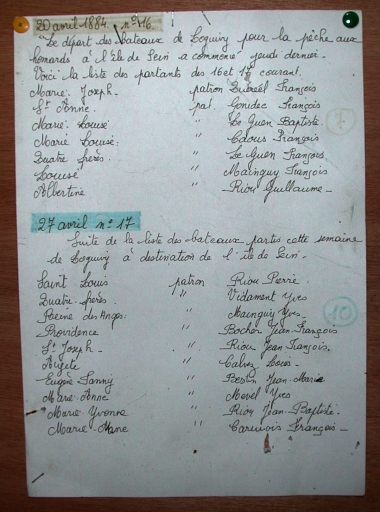 20 avril 1884. n° 16
Le départ des bateaux de Loguivy pour la pêche aux
homards à l'Ile de Sein a commencé jeudi dernier.
Voici la liste des partants des 16 et 17 courant.
Marie. Joseph. patron François
St Anne. pat. Gonidec François
Marie. Louise " Le Guen Baptiste
Marie Louise: " Caous François
Quatre frères. " Le Guen François 7
Louise " Mainguy François
Albertine " Riou Guillaume _
27 avril n° 17
Suite de la liste des bateaux partis cette semaine
de Loguivy à destination de l'île de Sein.
Saint Louis patron Riou Pierre.
Quatre frères. " Vidament Yves
Reine des Anges: Mainguy Yves. 10
Providence " Bocher Jean. François
St Joseph _ " Riou Jean François.
" Calvez Louis.
Eugène Fanny " Bestin Jean. Marie
Marie. Anne " Mevel Yves
Marie Yvonne " Riou Jean. Baptiste.
Marie " François _